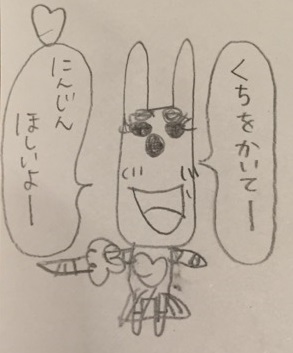 くちをかいてー
にんじん
ほしいよー